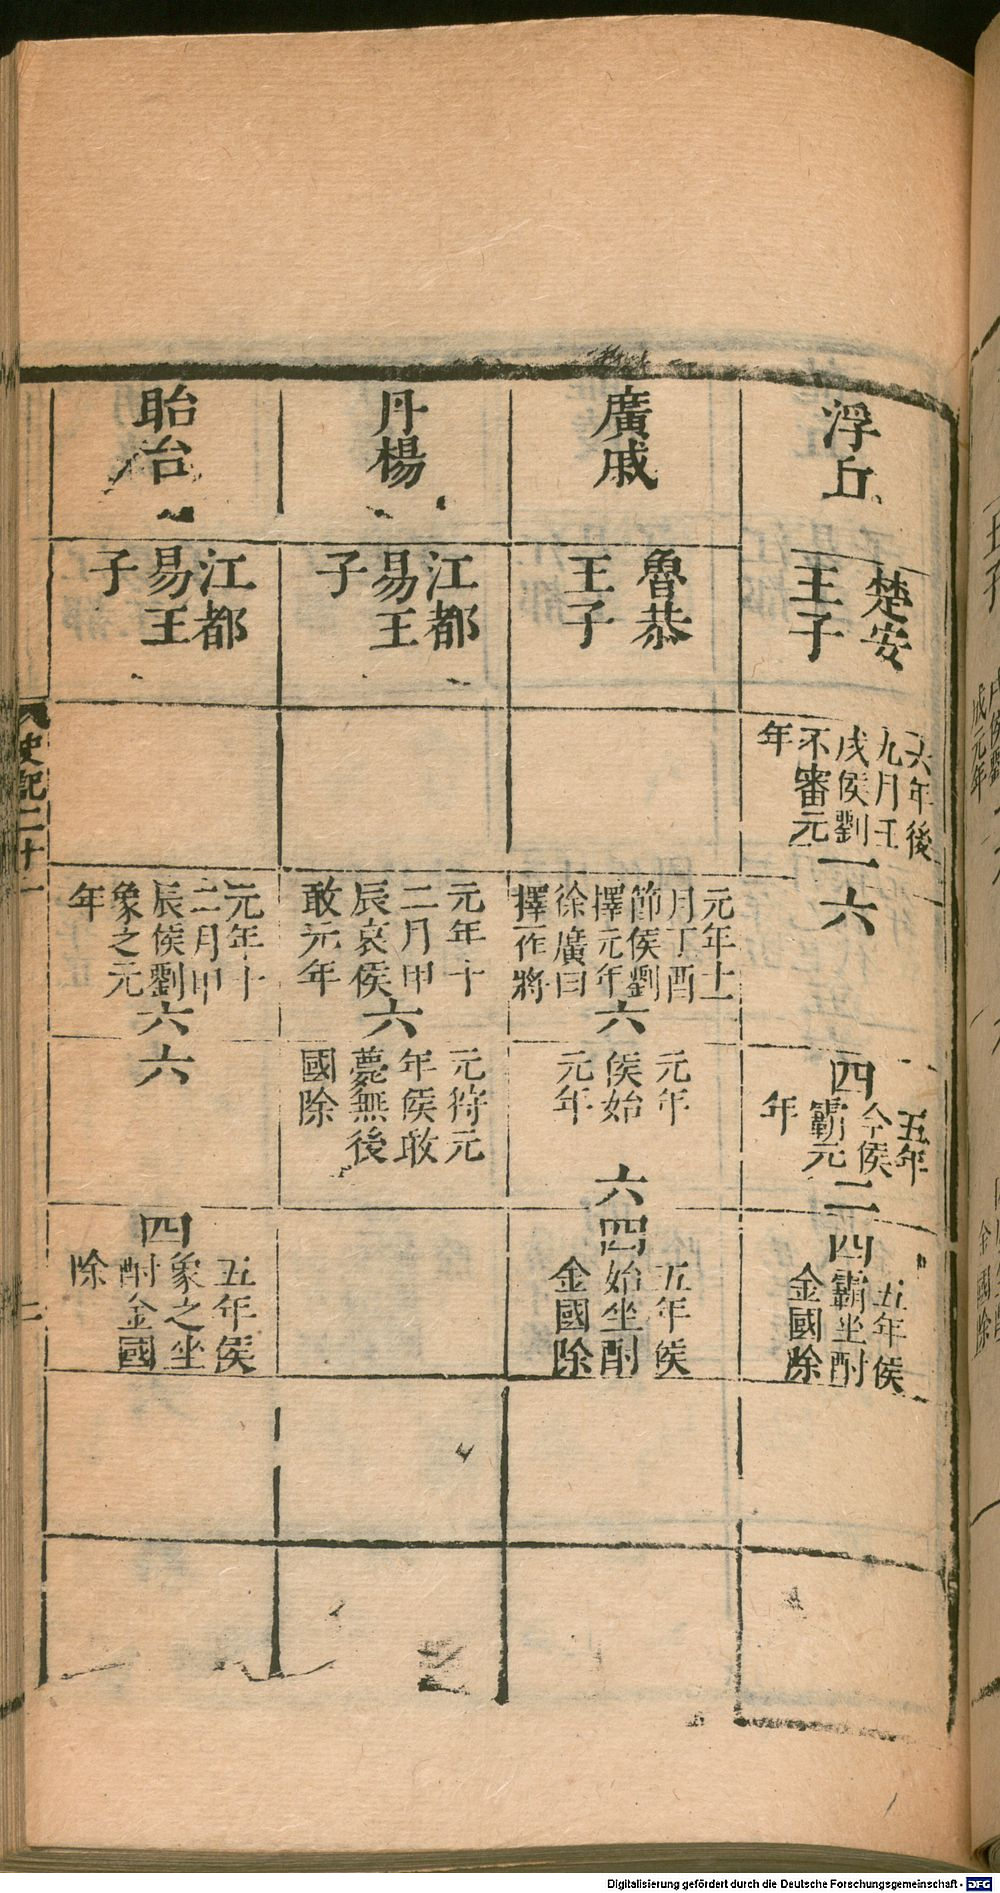 浮丘
楚安
王子
六年後
九月壬
戌侯劉
不審元
年
一六
五年
今侯
霸元
年
四
二
四
五年侯
霸坐酎
金國除
廣戚
魯恭
王子
元年十一
月丁酉
節侯劉
擇元年
徐廣曰
擇一作將
六
元年
侯始
元年
六
四
五年侯
始坐酎
金國除
丹楊
江都
易王
子
元年十
二月甲
辰哀侯
敢元年
六
元狩元
年侯敢
薨無後
國除
眙台
江都
易王
子
元年十
二月甲
辰侯劉
象之元
年
六
六
四
五年侯
象之坐
酎金國
除
史記二十一
二
Digitalisierung gefördert durch die Deutsche Forschungsgemeinschaft - DFG